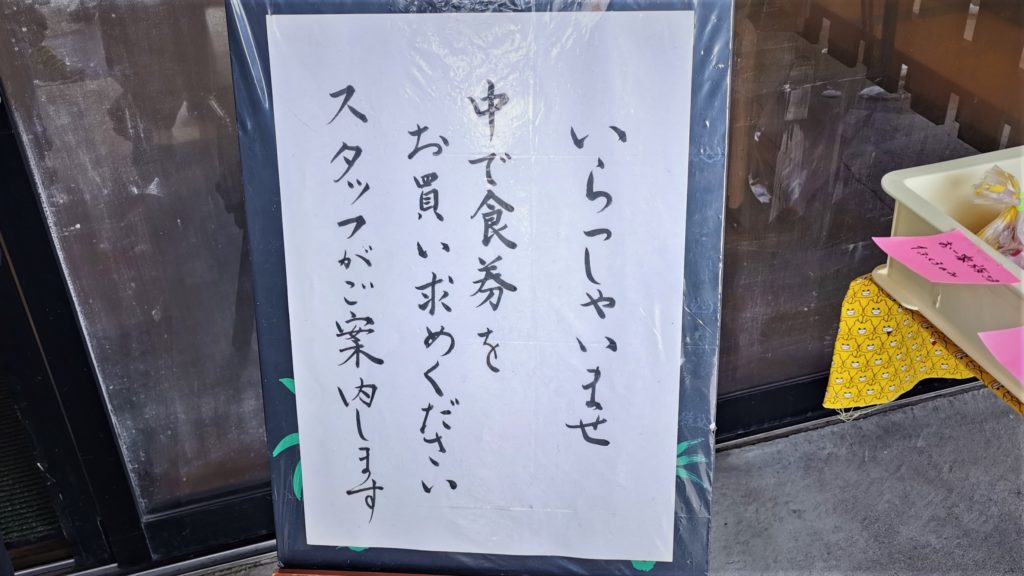 いらっしゃいませ
中で食券を
お買い求めください
スタッフがご案内します